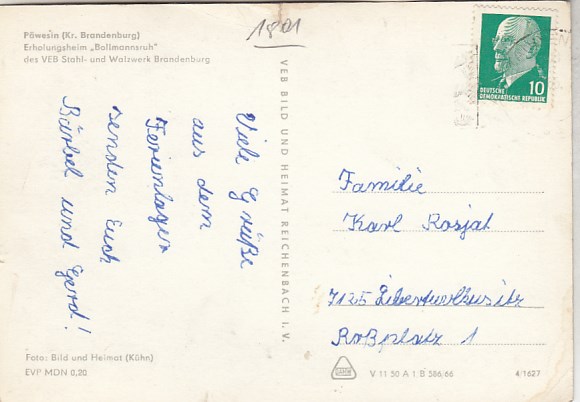 Päwesin (Kr. Brandenburg)
Erholungsheim „Bollmannsruh"
des VEB Stahl- und Walzwerk Brandenburg
1801
DEUTSCHE
DEMOKRATISCHE REPUBLIK
10
Viele Grüße
aus dem
Ferienlager
senden Euch
Bärbel und Gerd!
VEB BILD UND HEIMAT REICHENBACH I. V.
Familie
Karl Rosjat
7125 Liebertwolkwitz
Roßplatz 1
Foto: Bild und Heimat (Kühn)
EVP MDN 0,20
V 11 50 A 1/B 586/66
4/1627